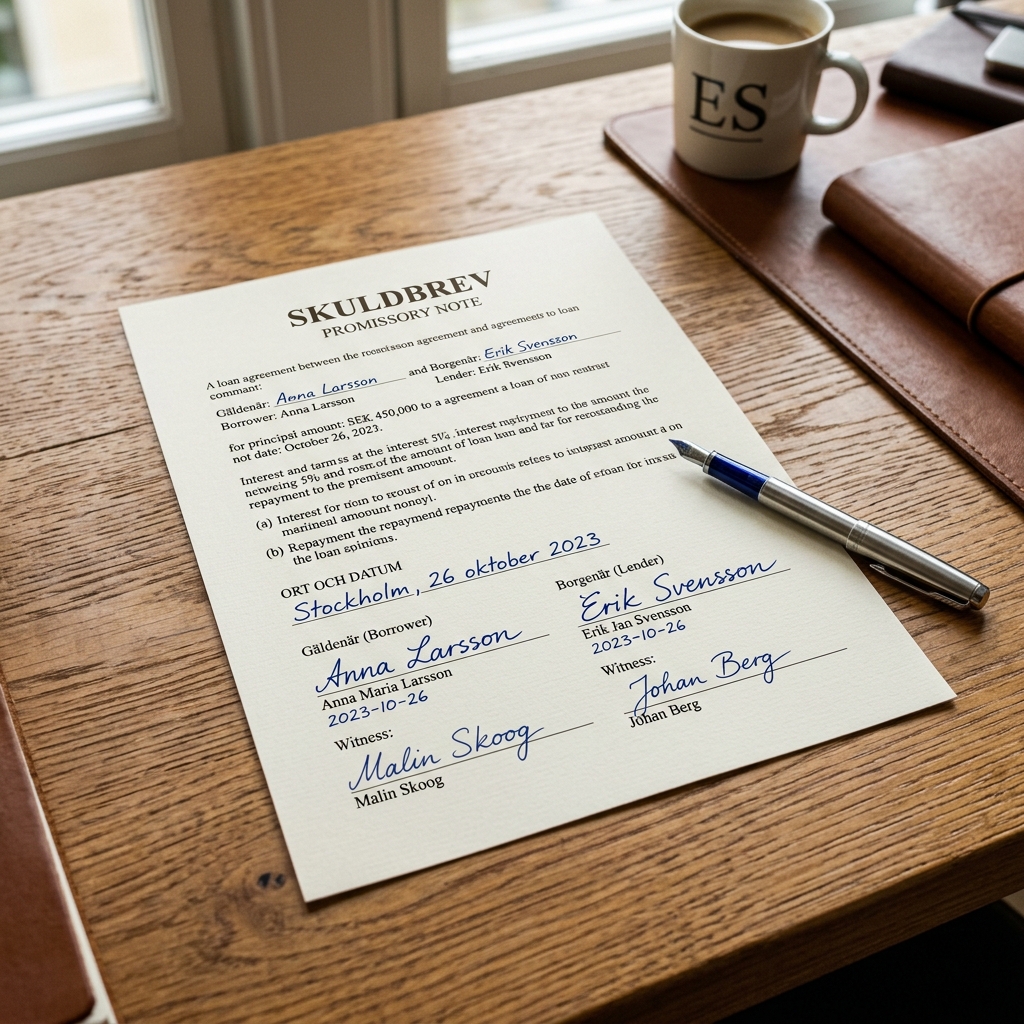 ES
SKULDBREV
PROMISSORY NOTE
A loan agreement between the agreement and agreements to loan
Gäldenär: Anna Larsson and Borgenär: Erik Svensson
Borrower: Anna Larsson Lender: Erik
for principal amount: SEK 450,000 to a agreement a loan of non
not date: October 26, 2023.
Interest and at the interest 5% interest to the amount the
5% and of the amount of loan and far for the
repayment to the amount.
(a) Interest for to of on in to amount a on
amount
(b) Repayment the the the date of for
the loan
ORT OCH DATUM
Stockholm, 26 oktober 2023
Gäldenär (Borrower) Borgenär (Lender)
Anna Larsson Erik Svensson
Anna Maria Larsson Erik Jan Svensson
2023-10-26 2023-10-26
Witness: Witness:
Malin Skoog Johan Berg
Malin Skoog Johan Berg